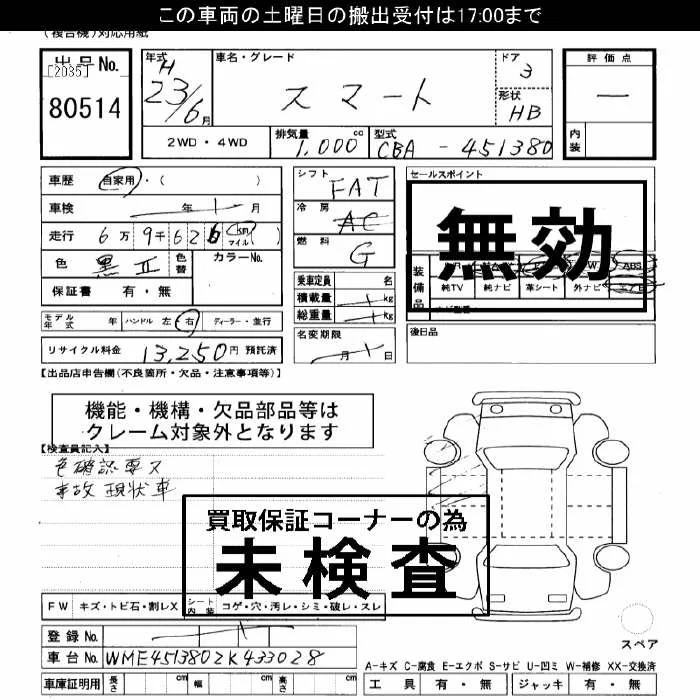 この車両の土曜日の搬出受付は17:00まで
(複合機)対応用紙
出品No. [2035] 80514
年式 H 23/6 月 車名・グレード スマート ドア 3 形状 HB
2WD・4WD 排気量 1,000 cc 型式 CBA - 451380
評価点 一 内装
車歴 自家用・( )
車検 年 月
走行 6万9千626 km マイル ( )
色 黒II 色替 カラーNo.
保証書 有・無
モデル年式 年 ハンドル 左 右 ディーラー・並行
リサイクル料金 13,250円 預託済
シフト FAT
冷房 AC
燃料 G
乗車定員 名
積載量 kg
総重量 kg
名変期限 月 日
セールスポイント
無効
装備品 ABS
純TV 純ナビ 革シート 外ナビ エアB
後日品
【出品店申告欄(不良箇所・欠品・注意事項等)】
機能・機構・欠品部品等は
クレーム対象外となります
【検査員記入】
色確認要ス
事故現状車
買取保証コーナーの為
未検査
FW キズ・トビ石・割レX シート内装 コゲ・穴・汚レ・シミ・破レ・スレ
登録No.
車台No. WME4513802K433028
車庫証明用 長さ cm 幅 cm 高さ cm
スペア
A-キズ C-腐食 E-エクボ S-サビ U-凹ミ W-補修 XX-交換済
工具 有・無 ジャッキ 有・無